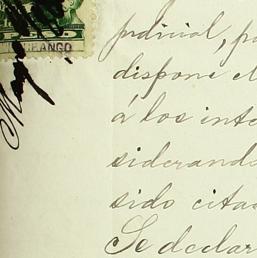 DURANGO
judicial, p
dispone el
á los inte
siderand
sido cita
Se declar